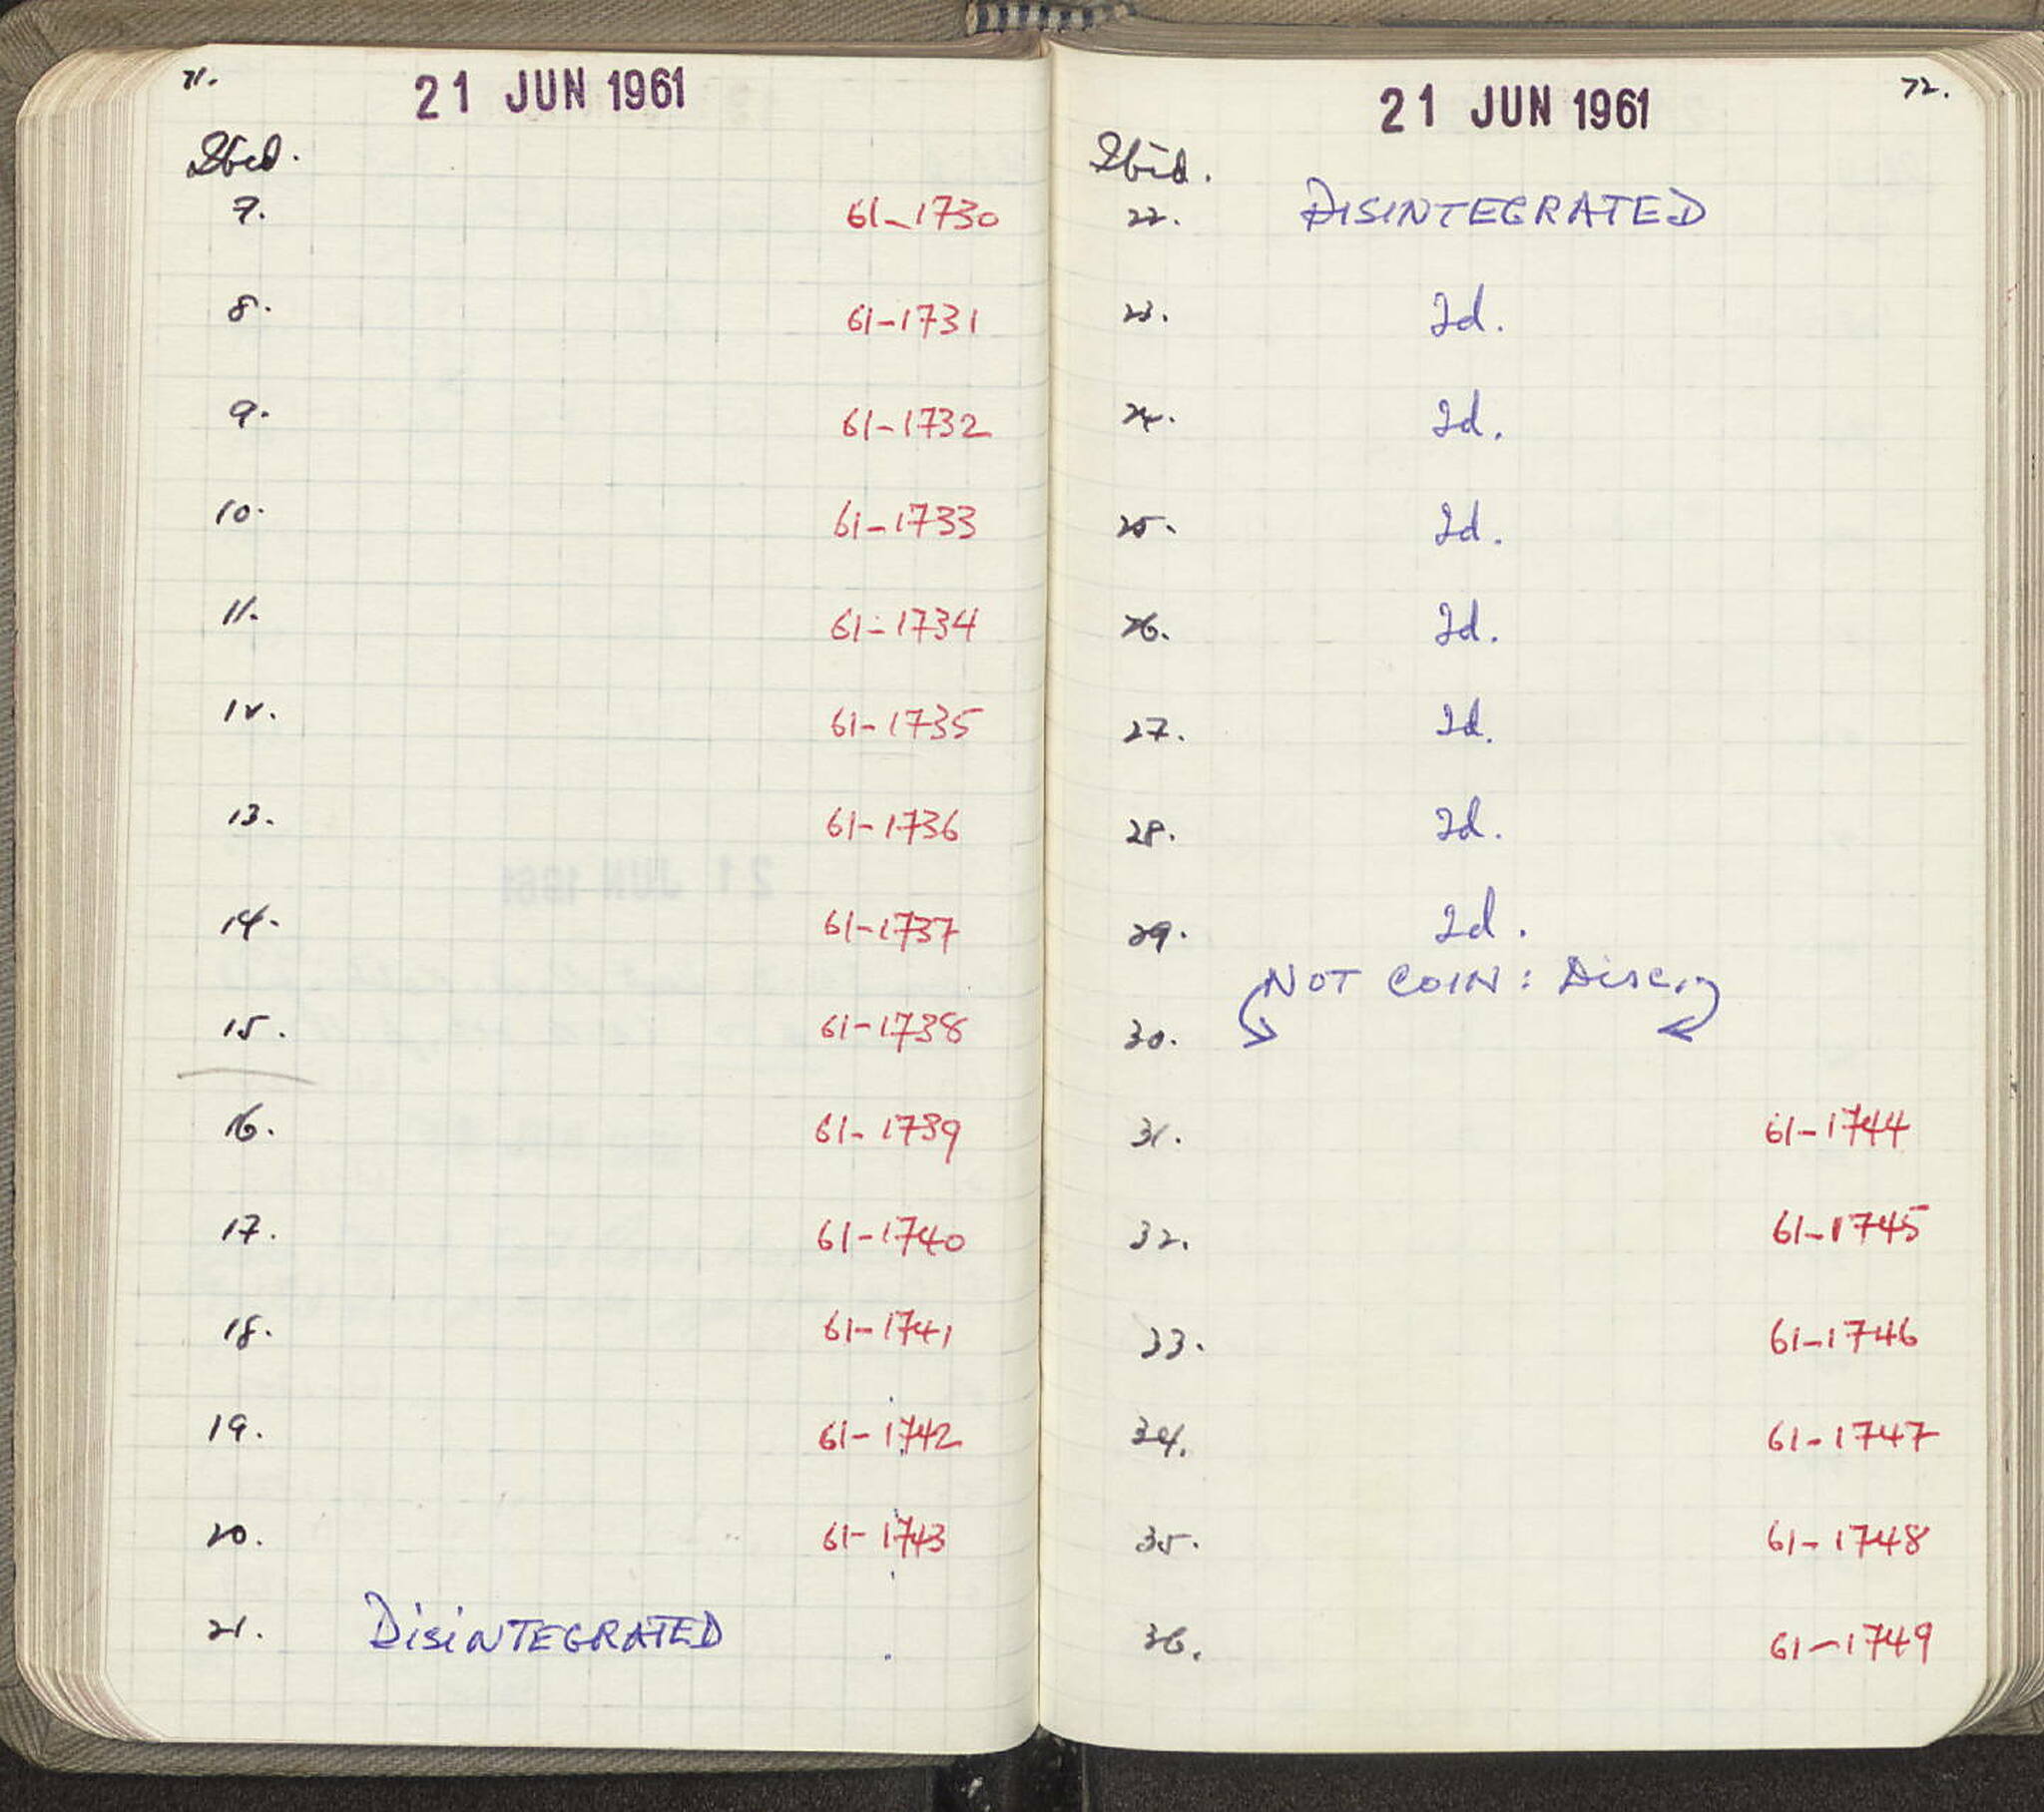 71.
21 JUN 1961
Ibid.
7. 61-1730
8. 61-1731
9. 61-1732
10. 61-1733
11. 61-1734
12. 61-1735
13. 61-1736
14. 61-1737
15. 61-1738
16. 61-1739
17. 61-1740
18. 61-1741
19. 61-1742
20. 61-1743
21. DISINTEGRATED
72.
21 JUN 1961
Ibid.
22. DISINTEGRATED
23. Id.
24. Id.
25. Id.
26. Id.
27. Id.
28. Id.
29. Id.
NOT COIN: Disc.
30.
31. 61-1744
32. 61-1745
33. 61-1746
34. 61-1747
35. 61-1748
36. 61-1749